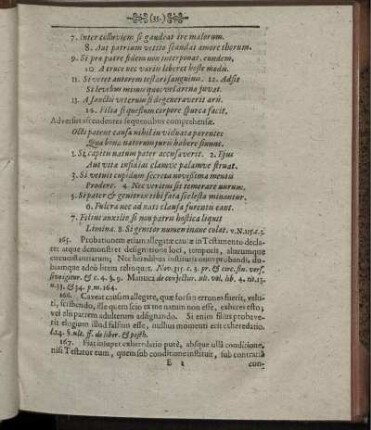 (35)
7. Inter colluviem si gaudeat ire malorum.
8. Aut patrium vetito scandat amore thorum.
9. Si pro patre fidem non interponat eundem,
10. A truce nec variis liberet hoste modis.
11. Si vetet autorem testari sanguinis. 12. Adsit
Si levibus mimus quoc vel arena juvat.
13. A sancta veterum si degeneraverit arti.
14. Filia si quæstum corpore spurca facit.
Adversus ascendentes sequentibus comprehensæ.
Octo parent causæ nihil in viduata parentes
Qua bona natorum juris habere sinunt.
1. Si capitis natum pater accusaverit. 2. Ejus
Aut vita insidias clamve palamve struat.
3. Si vetuit cupidum secreta novissima mentis
Prodere. 4. Nec veniens si temerare nurum.
5. Si pater & genitrix sibi fata scelesta minantur.
6. Fulcra nec ad natis clausa furentis eant.
7. Filius auxilio si non patris hostica liquit
Limina. 8. Si genitor numen inane colat. v. N. 115. c. 3.
165. Probationem autem allegatæ causæ in Testamento decla-
ret atque demonstret designatione loci, temporis, aliarumque
circumstantiarum; Nec hæredibus institutis onus probandi, du-
biamque adeo litem relinquat. Nov. 115. c. 3. pr. & circ. fin. vers.
sive igitur. & c. 4. §. 9. Mantica de conjectur. ult. vol. lib. 4. tit. 13.
n. 13. & 34. p. m. 164.
166. Caveat causam allegare, quæ
vel ille patrem adulterum adsignando. Si enim filius probave-
rit elogium illud falsum esse, nullius momenti erit exheredatio.
l. 14. §. ult. ff. de liber. & posth.
167. Fiat insuper exheredatio purè, absque ulla conditione,
nisi Testator eum, quem sub conditione instituit, sub contrariâ
E 2 con-